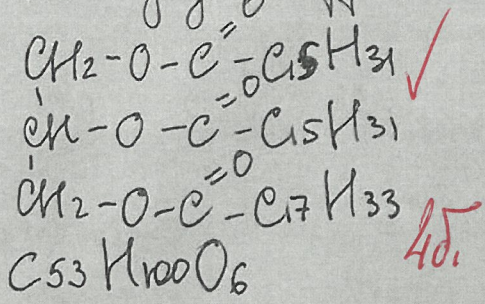 CH2-O-C=O-C15H31 ✓
CH-O-C=O-C15H31
CH2-O-C=O-C17H33
C53H100O6 4б.